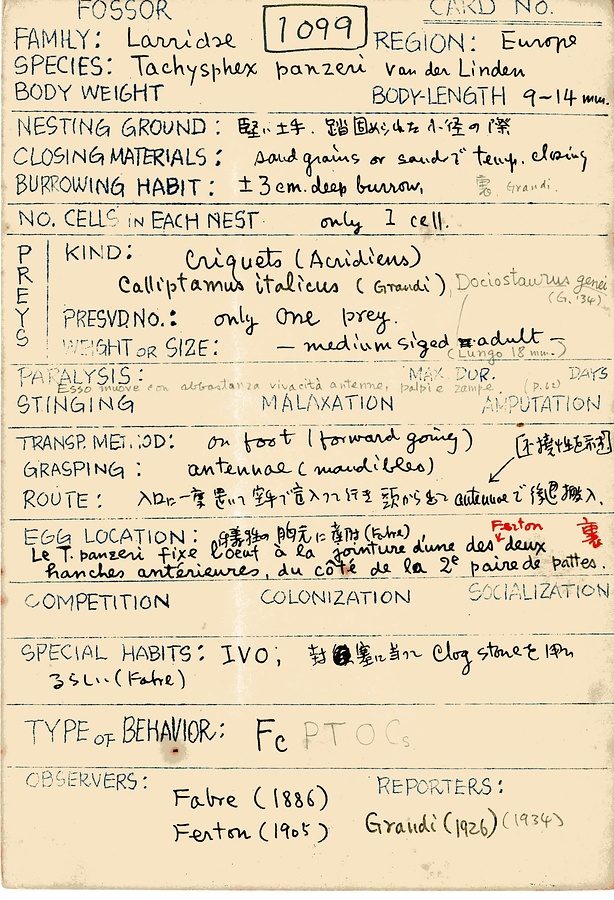 FOSSOR
CARD NO.
1099
FAMILY: Larridae
REGION: Europe
SPECIES: Tachysphex panzeri van der Linden
BODY WEIGHT
BODY-LENGTH 9~14 mm.
NESTING GROUND: 堅い土手. 踏固められた小径の際
CLOSING MATERIALS: sand grains or sandで temp. closing
BURROWING HABIT: ±3cm. deep burrow,
裏 Grandi.
NO. CELLS IN EACH NEST only 1 cell.
PREYS
KIND: Criquets (Acridiens)
Calliptamus italicus (Grandi), Dociostaurus genei
(G. '34)
PRESVD. NO.: only One prey.
WEIGHT OR SIZE: — medium sized adult —
(Lungo 18 mm.)
PARALYSIS:
MAX. DUR. DAYS
Esso muove con abbastanza vivacità antenne, palpi e zampe. (p.62)
STINGING MALAXATION AMPUTATION
TRANSP. METHOD: on foot (forward going)
GRASPING: antennae (mandibles)
ROUTE: 入口に一度置いて 入って行き 頭から出て antennae で後退搬入.
EGG LOCATION: 犠牲の胸元に産附 (Fabre)
Ferton
裏
Le T. panzeri fixe l'oeuf à la jointure d'une des deux
hanches antérieures, du côté de la 2e paire de pattes.
COMPETITION COLONIZATION SOCIALIZATION
SPECIAL HABITS: IVO; 封塞に当って Clog stoneを用い
るらしい (Fabre)
TYPE OF BEHAVIOR: Fc PTOCs
OBSERVERS:
REPORTERS:
Fabre (1886)
Ferton (1905)
Grandi (1926) (1934)